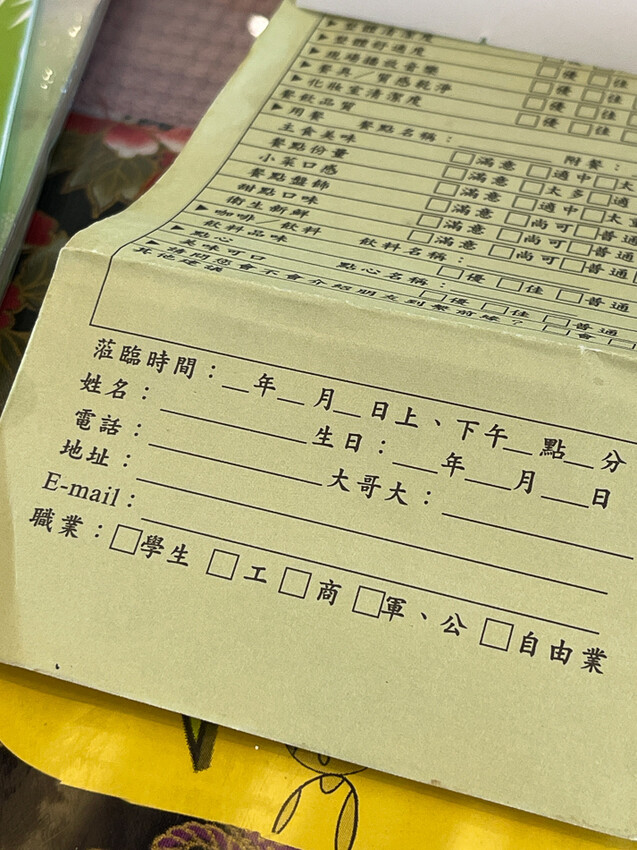 ▶整體清潔度
▶整體舒適度
▶現場播放音樂
▶餐具／質感乾淨 □優 □佳
▶化妝室清潔度 □優 □佳
餐飲品質 □優 □佳
▶用餐 餐點名稱：＿＿＿＿ 附餐：
主食美味 □滿意 □適中 □太
餐點份量 □滿意 □太多 □適
小菜口感 □滿意 □適中 □太
餐點盤飾 □滿意 □尚可 □普通
甜點口味 □滿意 □尚可 □普通
衛生新鮮 □滿意 □尚可 □普通
▶咖啡／飲料 飲料名稱：
飲料品味 □優 □佳 □普通
▶點心 點心名稱：
美味可口 □優 □佳 □普通
▶請問您會不會介紹朋友到餐前緣？ □會 □
其他建議
蒞臨時間：＿年＿月＿日上、下午＿點＿分
姓名：＿＿＿＿＿生日：＿年＿月＿日
電話：＿＿＿＿＿大哥大：＿＿＿＿＿
地址：
E-mail：
職業：□學生 □工 □商 □軍、公 □自由業